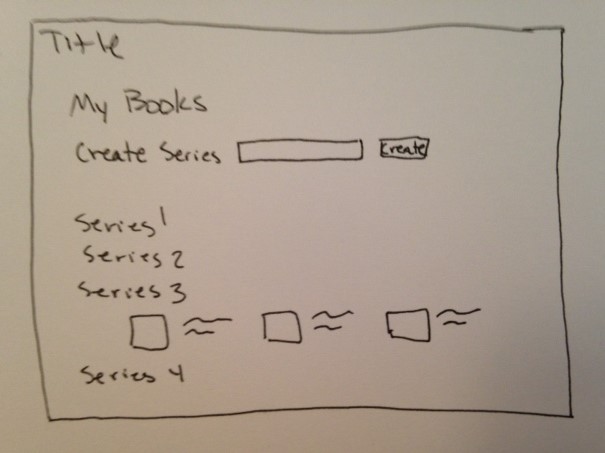 Title
My Books
Create Series Create
Series 1
Series 2
Series 3
Series 4